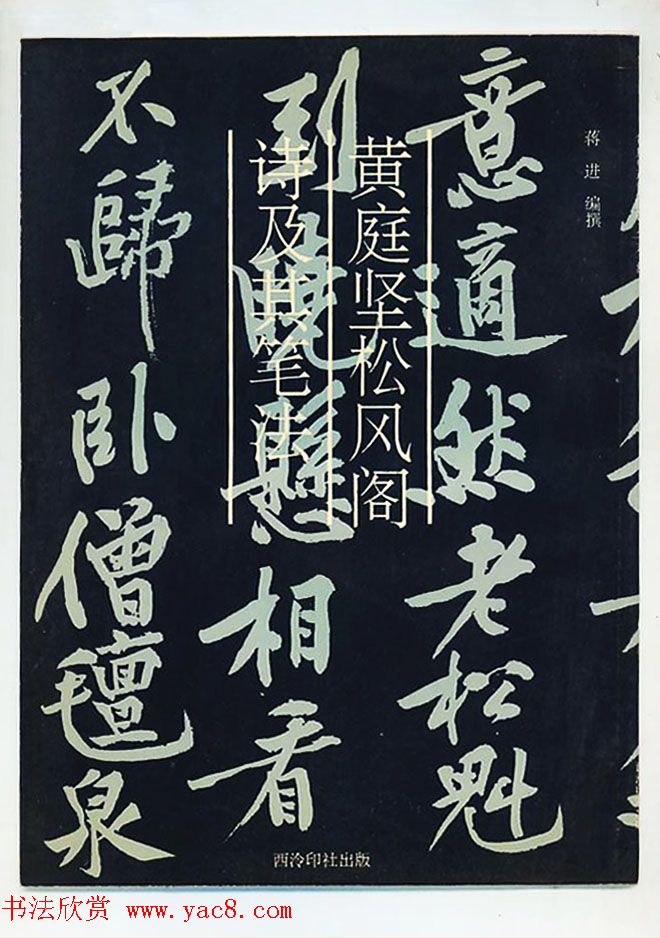 蒋进 编撰
黄庭坚松风阁
诗及其笔法
意適然老松魁
到曉懸相看
不歸臥僧氈泉
西泠印社出版
书法欣赏 www.yac8.com